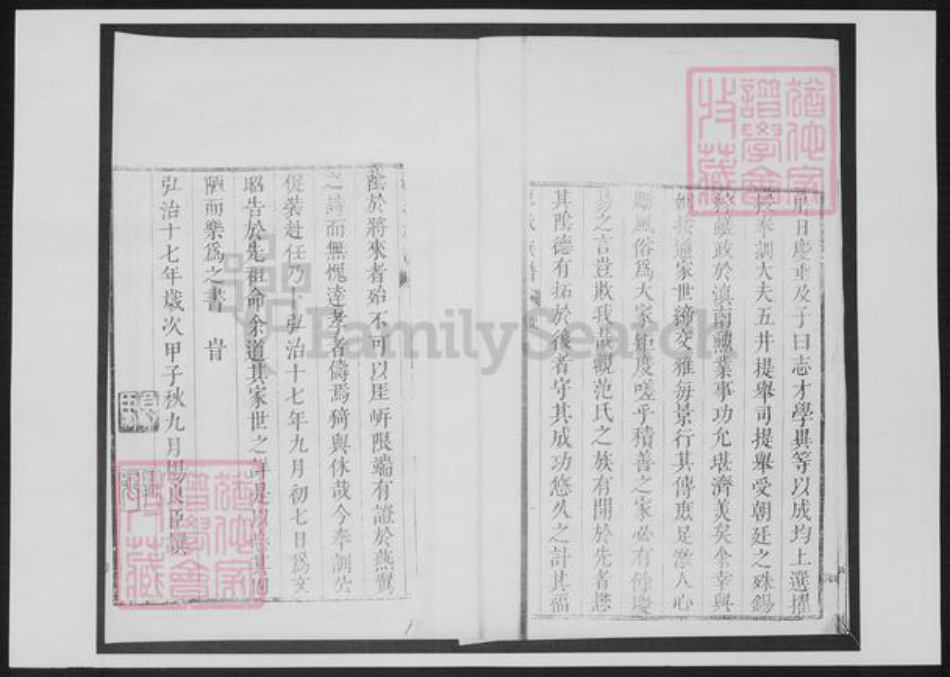 日慶重及子曰志才學異等以成均上選擢
奉訓大夫五井提舉司提舉受朝廷之殊錫
鹺政於滇南勲業事功允堪濟美矣余幸與
接通家世締交雅每景行其傳庶足激人心
風俗爲大家矩度嗟乎積善之家必有餘慶
易之言豈欺我哉觀范氏之族有開於先者懋
其陰德有拓於後者守其成功悠久之計其福
蔭於將來者殆不可以厓岍限端有證於燕翼
之詩而無愧達孝者儔焉猗與休哉今奉訓公
促裝赴任乃卜弘治十七年九月初七日爲文
昭告於先祖命余道其家世之詳是以忘其固
陋而樂爲之書 旹
弘治十七年歲次甲子秋九月楊良臣撰
FamilySearch
譜學會
收藏
譜學會
收藏